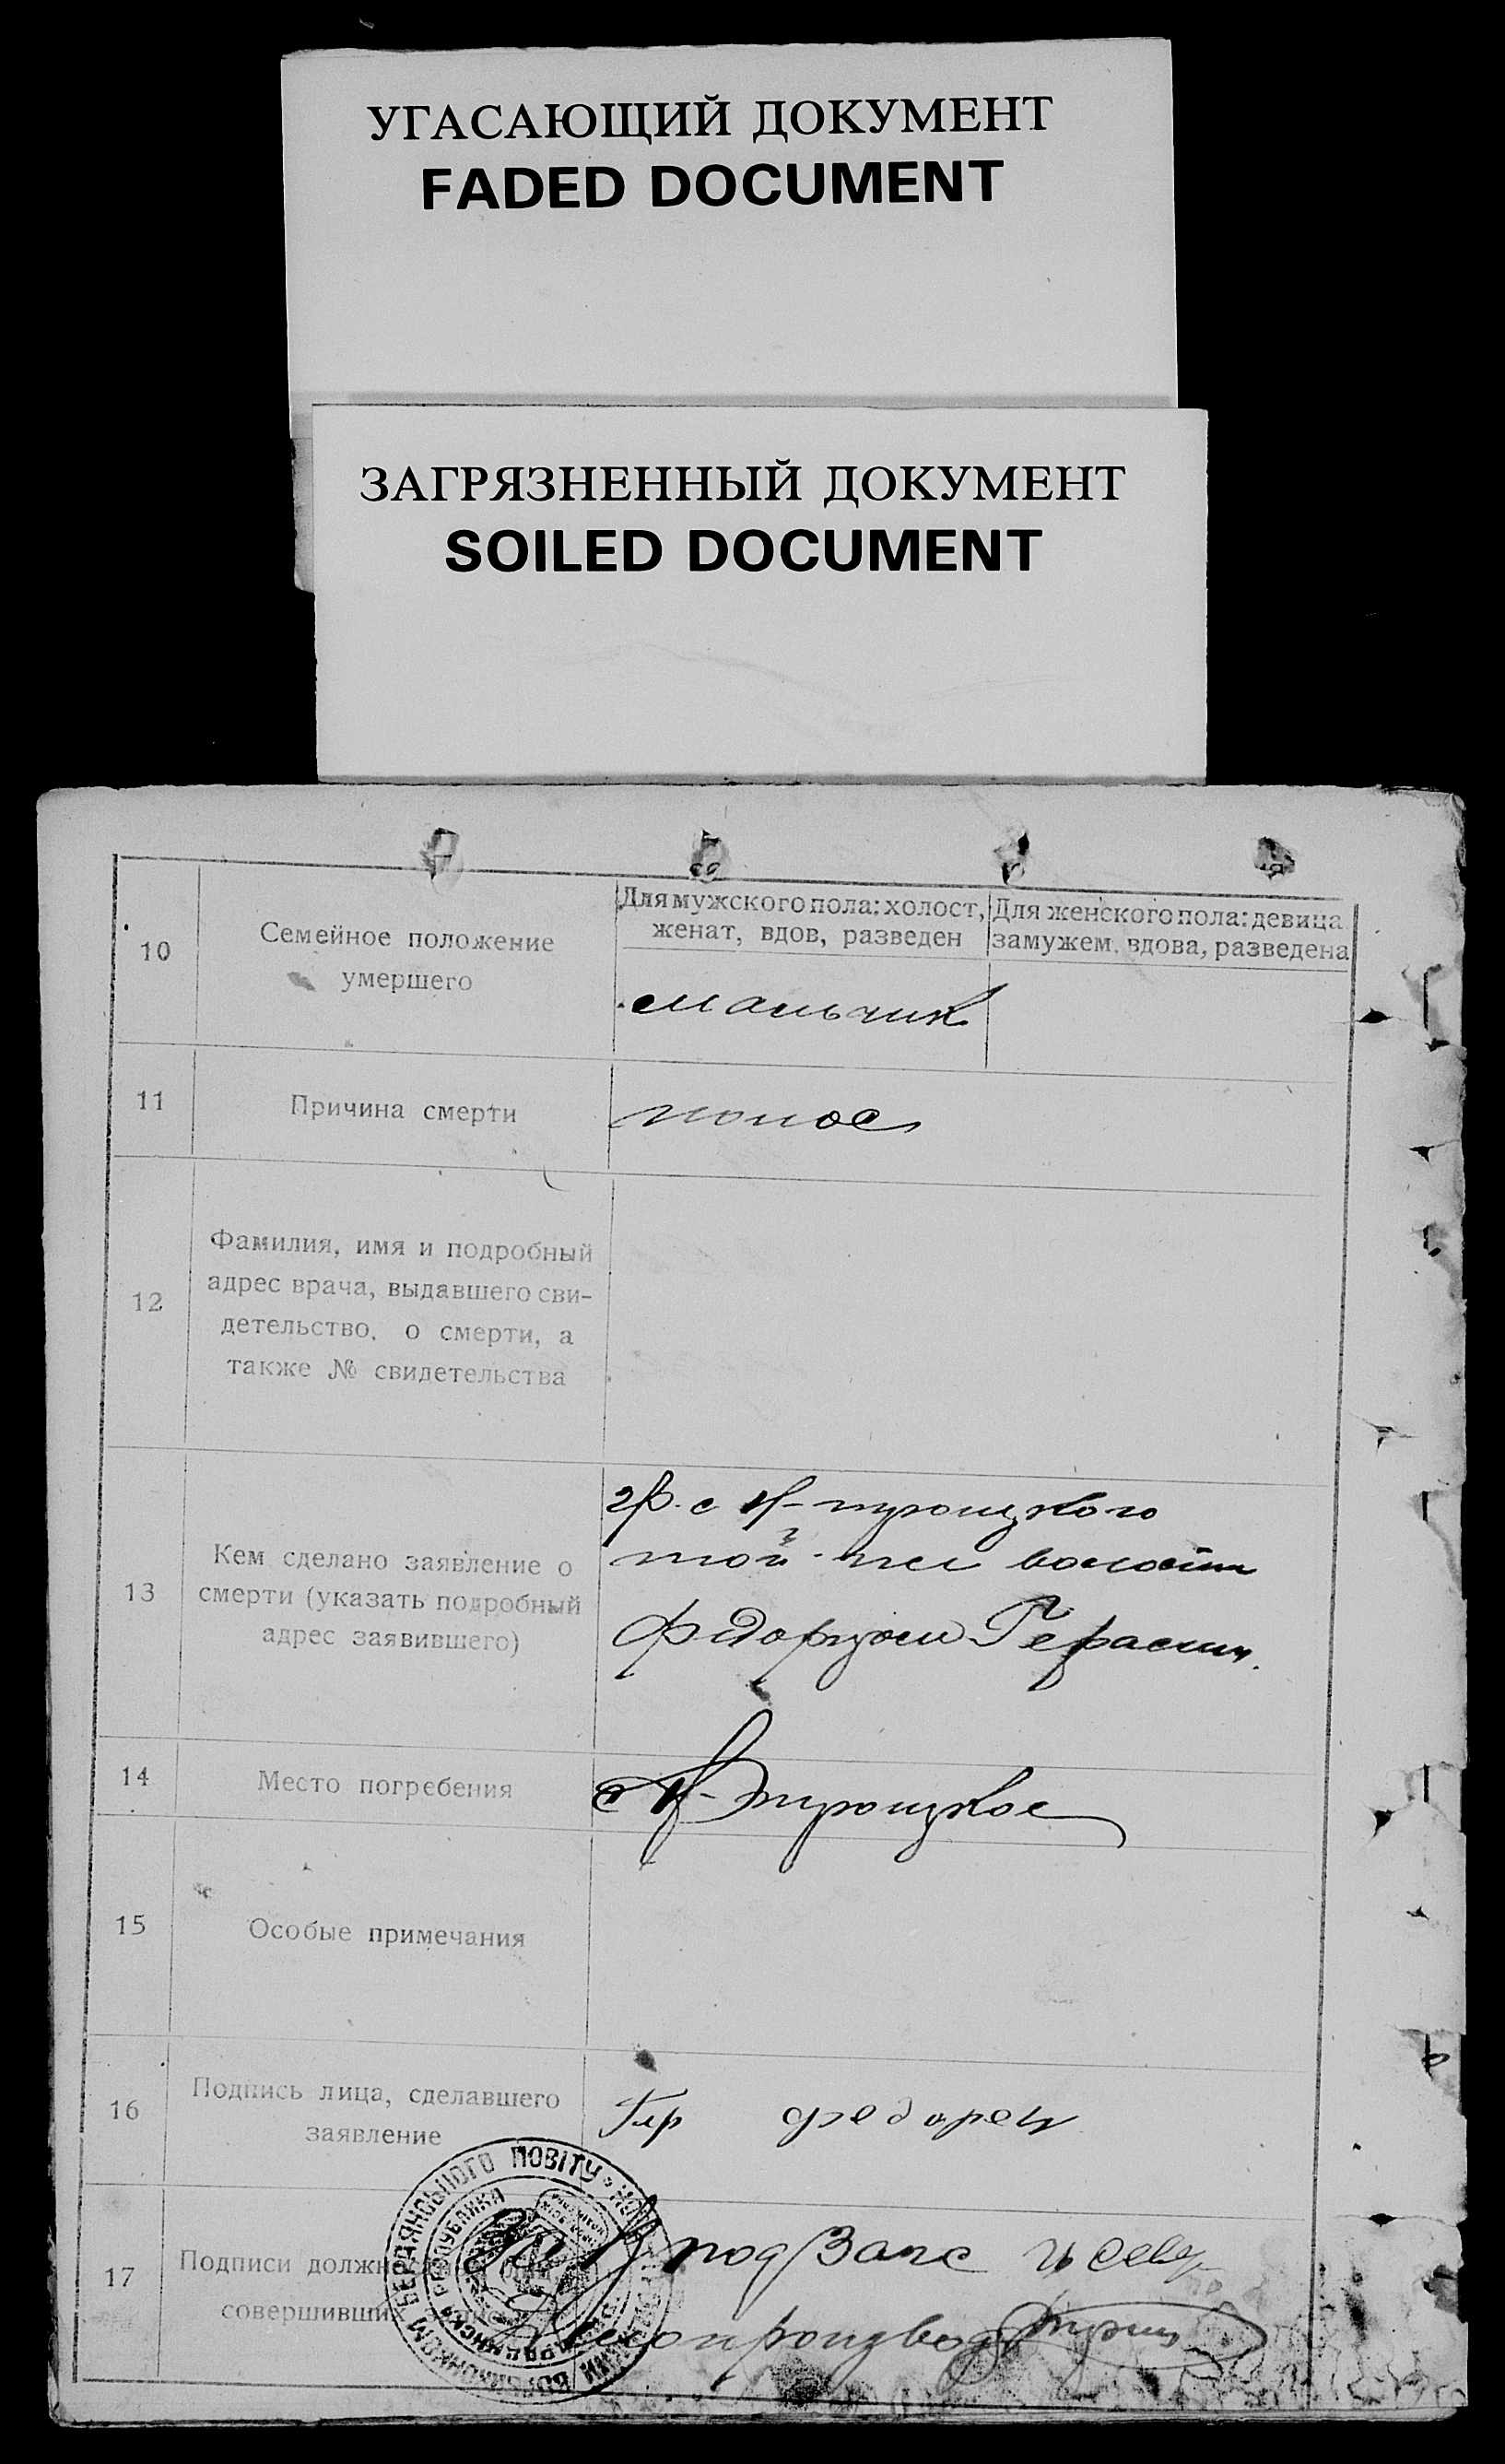 УГАСАЮЩИЙ ДОКУМЕНТ
FADED DOCUMENT
ЗАГРЯЗНЕННЫЙ ДОКУМЕНТ
SOILED DOCUMENT
10
Семейное положение
умершего
Для мужского пола: холост,
женат, вдов, разведен
Для женского пола: девица
замужем, вдова, разведена
мальчик
11
Причина смерти
понос
12
Фамилия, имя и подробный
адрес врача, выдавшего сви-
детельство, о смерти, а
также № свидетельства
13
Кем сделано заявление о
смерти (указать подробный
адрес заявившего)
гр. с Н-троицкого
той-же волости
Федорцом Герасим.
14
Место погребения
с Н-троицкое
15
Особые примечания
16
Подпись лица, сделавшего
заявление
федорец
17
Подписи
совершивших
Зав под Запс
Делопроизвод
БЕРДЯНСЬКОГО ПОВІТУ